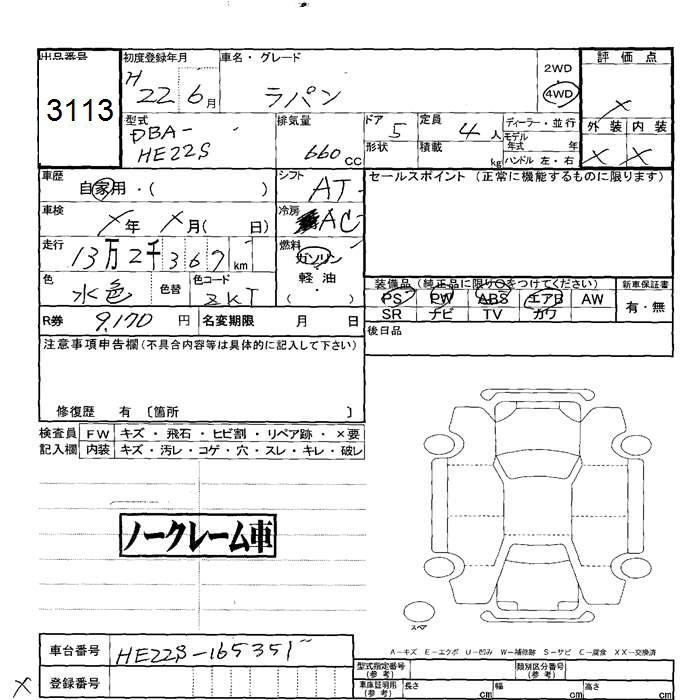 出品番号 初度登録年月 車名・グレード 2WD 評価点
3113 H 22 6月 ラパン 4WD ×
型式 DBA-HE22S 排気量 660 CC ドア 5 定員 4人 ディーラー・並行 外装 内装
形状 積載 kg モデル年式 年 × ×
ハンドル 左・右
車歴 自家用・( ) シフト AT セールスポイント (正常に機能するものに限ります)
車検 ×年 ×月( 日) 冷房 AC
走行 13万2千367 km 燃料 ガソリン
軽・油
( )
色 水色 色替 色コード ZKT 装備品(純正品に限り○をつけてください) 新車保証書
PS PW ABS エアB AW 有・無
SR ナビ TV カワ
R券 9,170 円 名変期限 月 日 後日品
注意事項申告欄(不具合内容等は具体的に記入して下さい)
修復歴 有 〔箇所 〕
検査員 FW キズ・飛石・ヒビ割・リペア跡・×要
記入欄 内装 キズ・汚レ・コゲ・穴・スレ・キレ・破レ
ノークレーム車
スペア
A-キズ E-エクボ U-凹み W-補修跡 S-サビ C-腐食 XX-交換済
車台番号 HE22S-165351
型式指定番号(参考) 類別区分番号(参考)
× 登録番号 車庫証明用(参考) 長さ cm 幅 cm 高さ cm